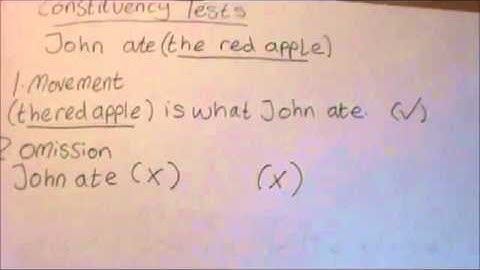 Constituency Tests
John ate (the red apple)
1. Movement
(the red apple) is what John ate. (✓)
2 omission
John ate (x) (x)